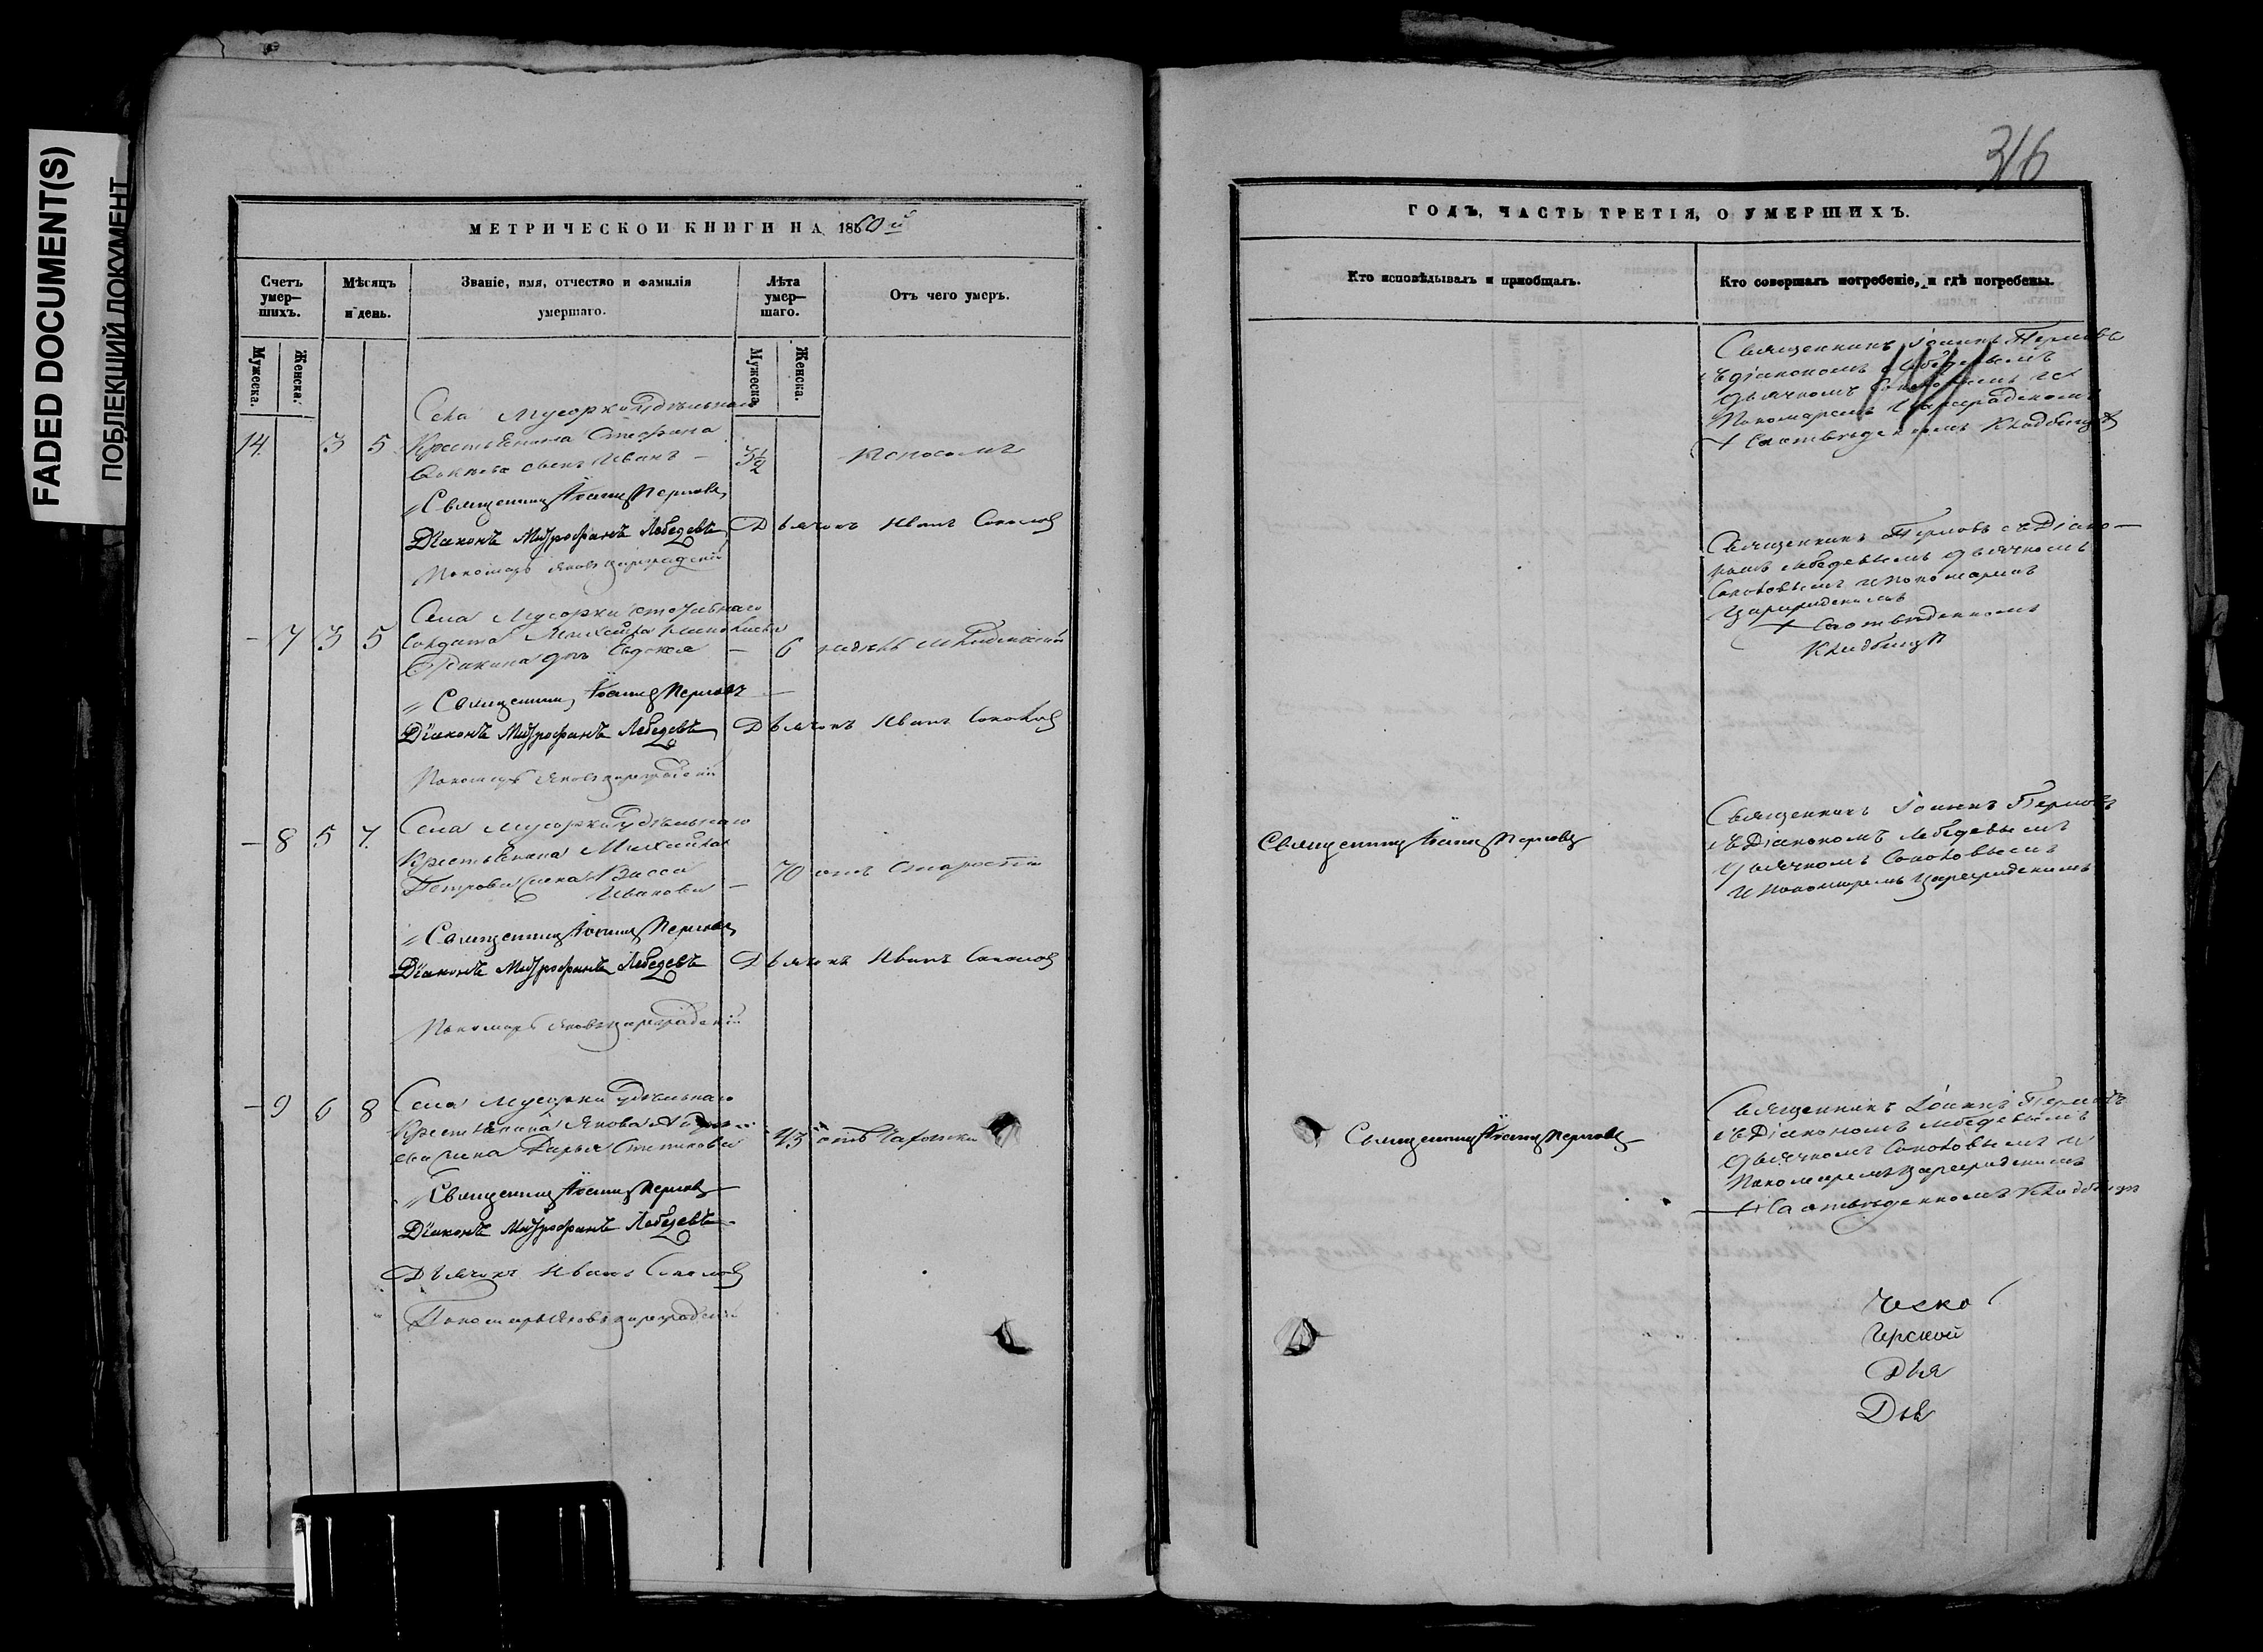 FADED DOCUMENT(S)
ПОБЛЕКШИЙ ДОКУМЕНТ
316
МЕТРИЧЕСКОЙ КНИГИ НА 1860й
Счетъ умер-шихъ.
Мѣсяцъ и день.
Званіе, имя, отчество и фамилія умершаго.
Лѣта умер-шаго.
Отъ чего умеръ.
Мужеска.
Женска.
Мужеска.
Женска.
Села Мусорки удѣльнаго
14 3 5 Крестьянина Стефана
сынъ Иванъ - 3½ поносомъ
Священникъ Іоаннъ Перловъ
Діаконъ Митрофанъ Лебедевъ Дьячокъ Иванъ Соколовъ
Пономарь Яковъ Цареградскій
Села Мусорки
- 7 3 5 Солдата Михаила
дочь Евдокія - 6
Священникъ Іоаннъ Перловъ
Діаконъ Митрофанъ Лебедевъ Дьячокъ Иванъ Соколовъ
Пономарь Яковъ Цареградскій
Села Мусорки удѣльнаго
- 8 5 7 Крестьянина Михаила
Петрова жена Васса
Иванова - 70 отъ старости
Священникъ Іоаннъ Перловъ
Діаконъ Митрофанъ Лебедевъ Дьячокъ Иванъ Соколовъ
Пономарь Яковъ Цареградскій
Села Мусорки удѣльнаго
- 9 6 8 Крестьянина Якова
ева жена Дарья Степанова 43 отъ чахотки
Священникъ Іоаннъ Перловъ
Діаконъ Митрофанъ Лебедевъ
Дьячокъ Иванъ Соколовъ
Пономарь Яковъ Цареградскій
ГОДЪ, ЧАСТЬ ТРЕТІЯ, О УМЕРШИХЪ.
Кто исповѣдывалъ и приобщалъ.
Кто совершалъ погребеніе, и гдѣ погребены.
Священникъ Іоаннъ Перловъ
съ Діакономъ Лебедевымъ
дьячкомъ Соколовымъ и
Пономаремъ Цареградскимъ
На отведенномъ кладбищѣ
Священникъ Перловъ съ Діако-
номъ Лебедевымъ дьячкомъ
Соколовымъ и пономаремъ
Цареградскимъ
На отведенномъ
кладбищѣ
Священникъ Іоаннъ Перловъ
Священникъ Іоаннъ Перловъ
съ Діакономъ Лебедевымъ
дьячкомъ Соколовымъ
и пономаремъ Цареградскимъ
Священникъ Іоаннъ Перловъ
Священникъ Іоаннъ Перловъ
съ Діакономъ Лебедевымъ
дьячкомъ Соколовымъ и
Пономаремъ Цареградскимъ
На отведенномъ кладбищѣ